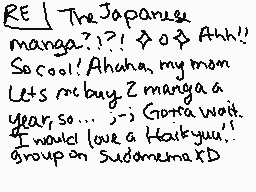 RE | The Japanese
manga?!?! ✧o✧ Ahh!!
So cool! Ahaha, my mom
Lets me buy 2 manga a
year, so... ;-; Gotta wait.
I would love a Haikyuu!!
group on Sudomemo XD